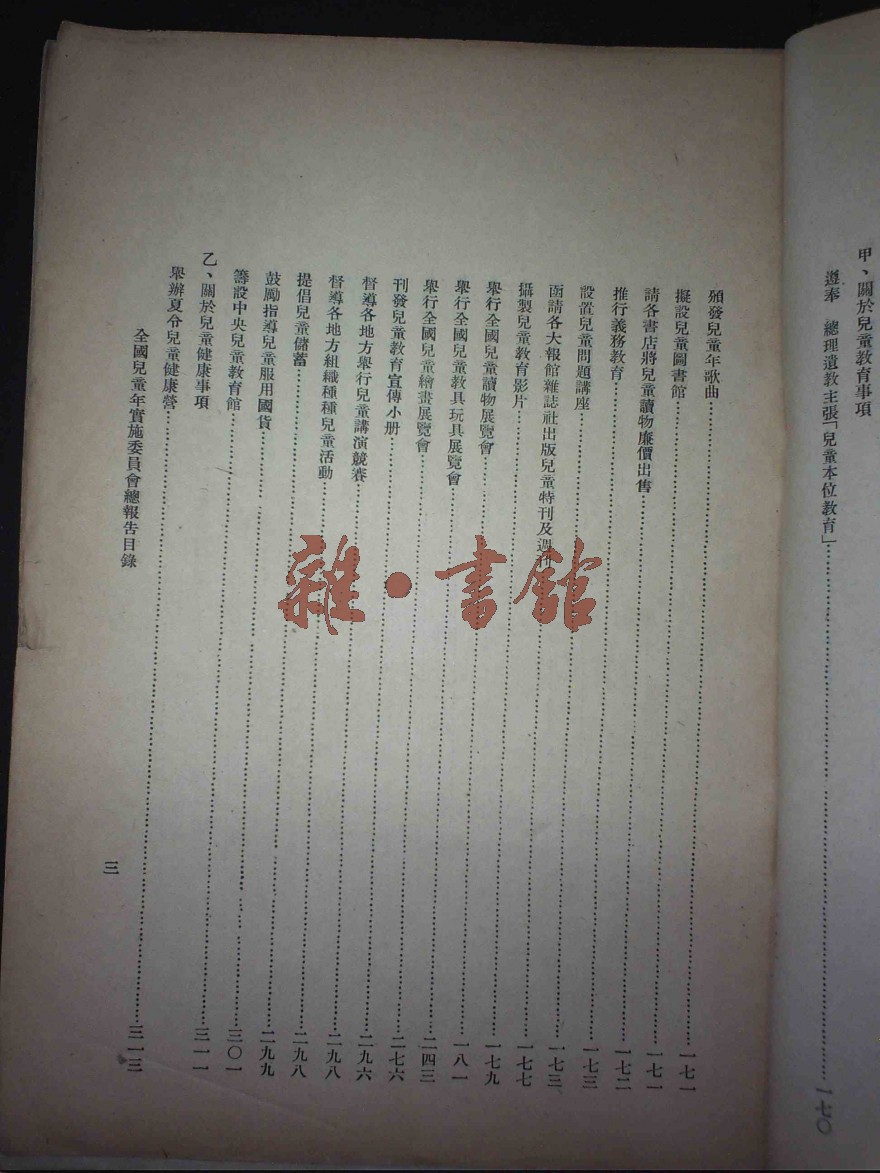 甲、關於兒童教育事項
遵奉　總理遺教主張「兒童本位教育」……一七〇
頒發兒童年歌曲……一七一
擬設兒童圖書館……一七一
請各書店將兒童讀物廉價出售……一七一
推行義務教育……一七二
設置兒童問題講座……一七三
函請各大報館雜誌社出版兒童特刊及週刊……一七三
攝製兒童教育影片……一七七
舉行全國兒童讀物展覽會……一七九
舉行全國兒童教具玩具展覽會……一八一
舉行全國兒童繪畫展覽會……二四三
刊發兒童教育宣傳小册……二七六
督導各地方舉行兒童講演競賽……二九六
督導各地方組織種種兒童活動……二九八
提倡兒童儲蓄……二九八
鼓勵指導兒童服用國貨……二九九
籌設中央兒童教育館……三〇一
乙、關於兒童健康事項……三一一
舉辦夏令兒童健康營……三一三
全國兒童年實施委員會總報告目錄
三
雜·書館